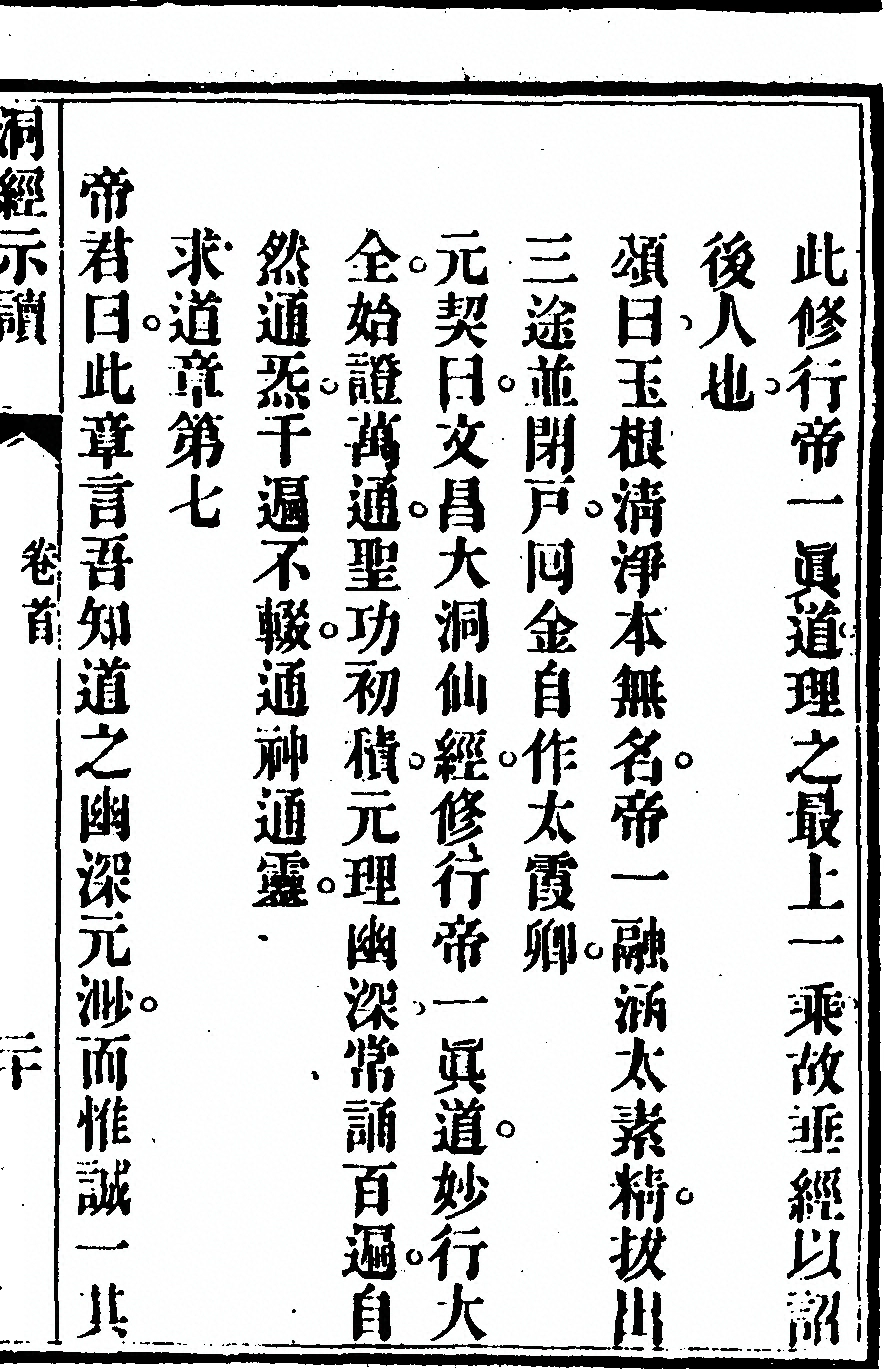 此修行帝一眞道理之最上一乘故垂經以詔
後人也
頌曰玉根清淨本無名帝一融涵太素精拔出
三途並閉戸回金自作太霞卿
元契曰文昌大洞仙經修行帝一眞道妙行大
全始證萬通聖功初積元理幽深常誦百遍自
然通炁千遍不輟通神通靈
求道章第七
帝君曰此章言吾知道之幽深元渺而惟誠一其
洞經示讀
卷首
二十